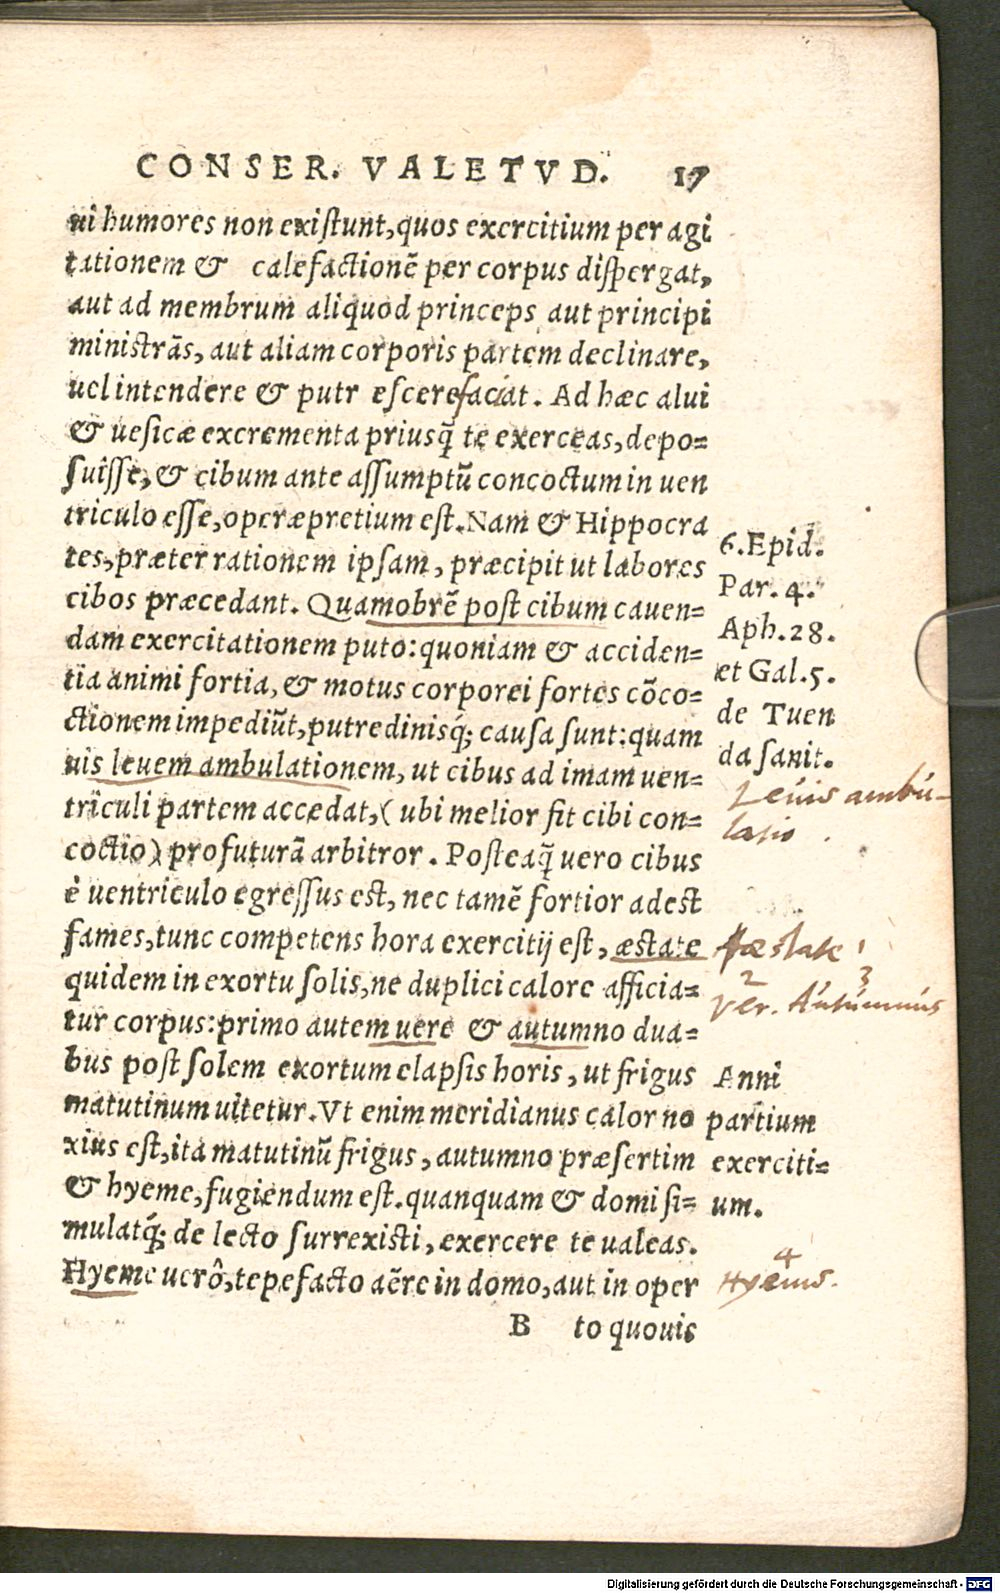 CONSER. VALETVD. 17
ui humores non existunt, quos exercitium per agi
tationem & calefactionē per corpus dispergat,
aut ad membrum aliquod princeps aut principi
ministrās, aut aliam corporis partem declinare,
uel intendere & putr escerefaciat. Ad hæc alui
& uesicæ excrementa priusq̃ te exerceas, depo=
suisse, & cibum ante assumptū concoctum in uen
triculo esse, operæpretium est. Nam & Hippocra
tes, præter rationem ipsam, præcipit ut labores
cibos præcedant. Quamobrē post cibum cauen=
dam exercitationem puto: quoniam & acciden=
tia animi fortia, & motus corporei fortes cōco=
ctionem impediūt, putredinisq́; causa sunt: quam
uis leuem ambulationem, ut cibus ad imam uen=
triculi partem accedat, ( ubi melior fit cibi con=
coctio) profuturā arbitror. Posteaq̃ uero cibus
è uentriculo egressus est, nec tamē fortior adest
fames, tunc competens hora exercitij est, æstate
quidem in exortu solis, ne duplici calore afficia=
tur corpus: primo autem uere & autumno dua=
bus post solem exortum elapsis horis, ut frigus
matutinum uitetur. Vt enim meridianus calor no
xius est, ita matutinū frigus, autumno præsertim
& hyeme, fugiendum est. quanquam & domi si=
mulatq́; de lecto surrexisti, exercere te ualeas.
Hyeme uerô, tepefacto aëre in domo, aut in oper
B to quouis
6. Epid.
Par. 4.
Aph. 28.
et Gal. 5.
de Tuen
da sanit.
Leuis ambu-
latio.
æstate 1
2 3
ver. Autumnus
Anni
partium
exerciti=
um.
4
Hyems.
Digitalisierung gefördert durch die Deutsche Forschungsgemeinschaft - DFG